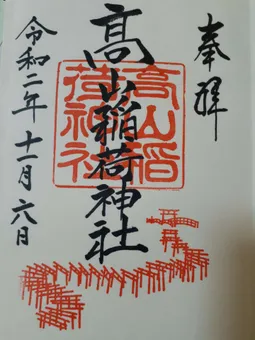 奉拝
髙山稲荷神社
髙山稲荷神社
令和二年十一月六日